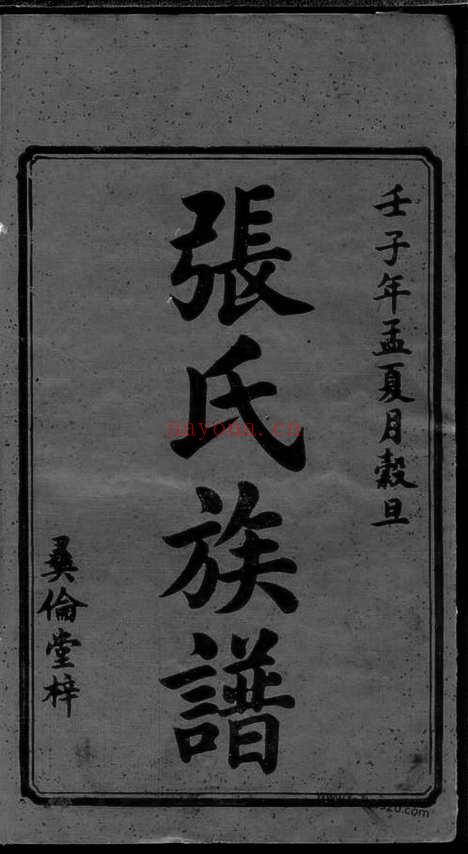 壬子年孟夏月穀旦
張氏族譜
彝倫堂梓
nayona.cn